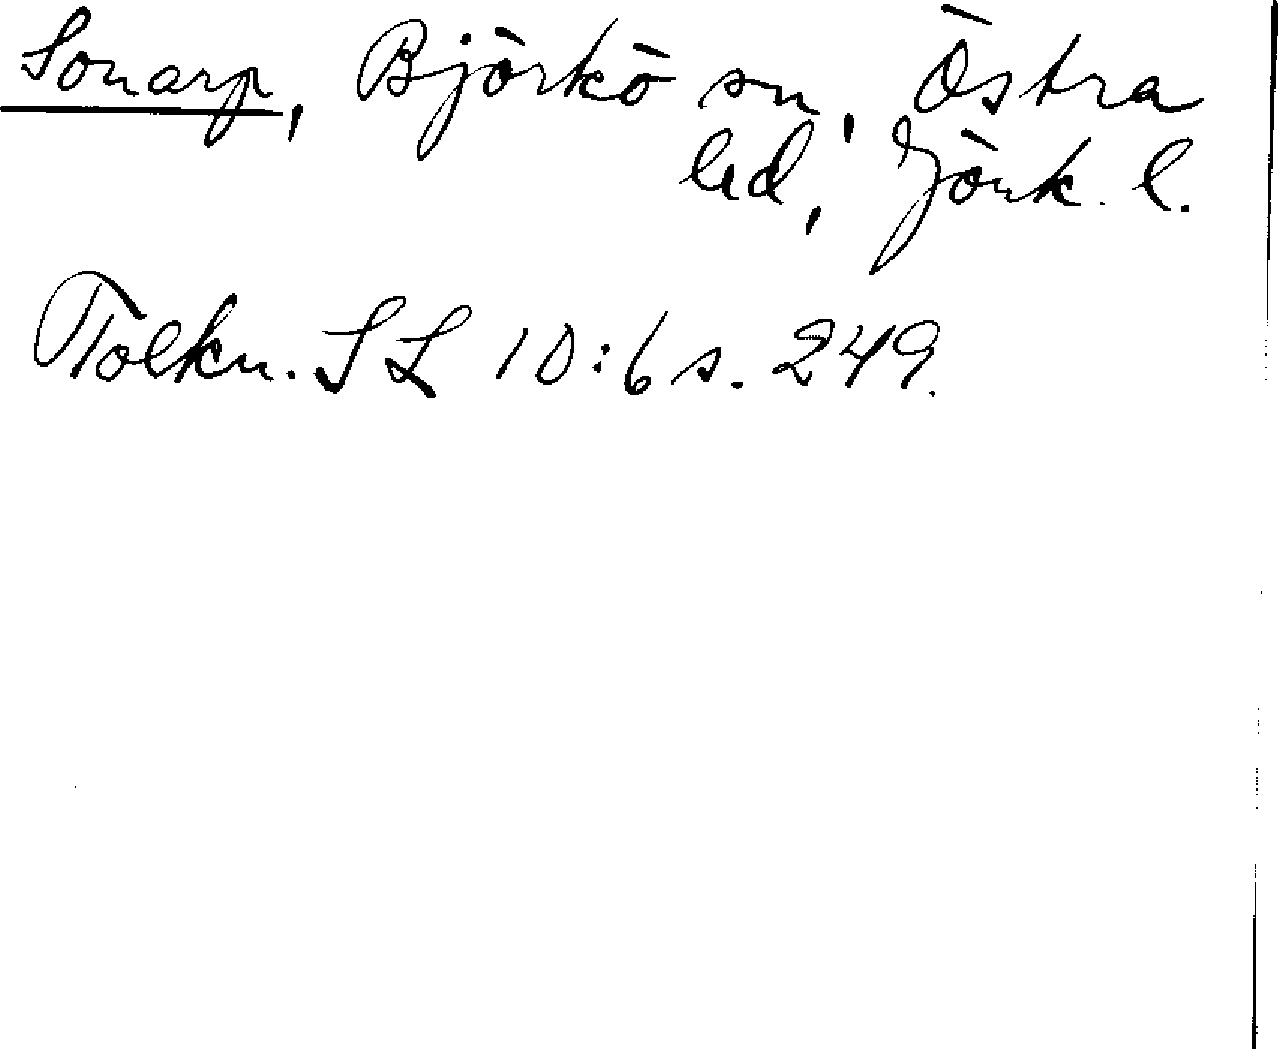 Sonarp, Björkö sn, Östra
hd, Jönk. l.
Tolkn. SL 10:6 s. 249.